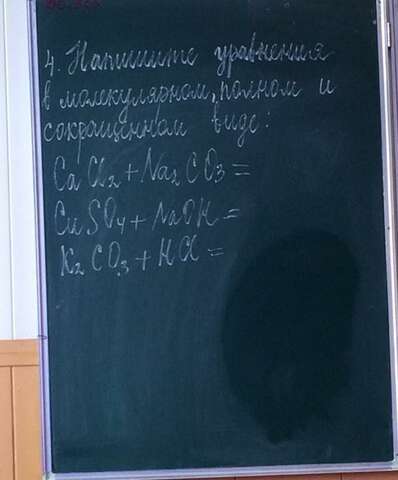 4. Напишите уравнения
в молекулярном, полном и
сокращенном виде:
CaCl₂ + Na₂CO₃ =
CuSO₄ + NaOH =
K₂CO₃ + HCl =